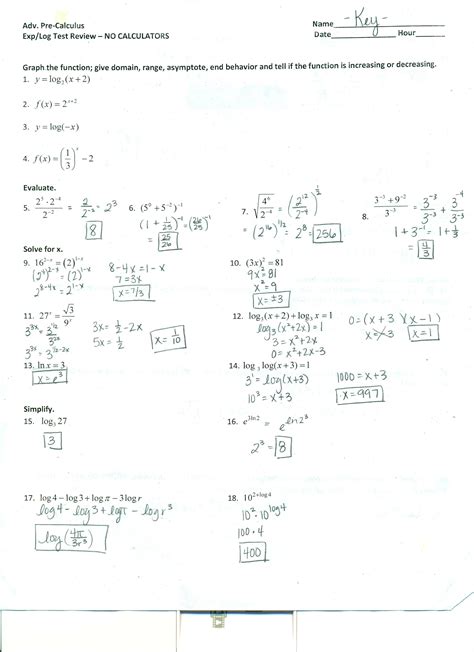 Adv. Pre-Calculus
Name -Key-
Exp/Log Test Review – NO CALCULATORS
Date Hour
Graph the function; give domain, range, asymptote, end behavior and tell if the function is increasing or decreasing.
1. y = log₂(x + 2)
2. f(x) = 2ˣ⁺²
3. y = log(−x)
4. f(x) = (1/3)ˣ − 2
Evaluate.
5. (2¹·2⁻⁴)/2⁻² = 2/2⁻² = 2³
8
6. (5⁰ + 5⁻²)⁻¹
(1 + 1/25)⁻¹ = (26/25)⁻¹
= 25/26
7. √(4⁶/2⁻⁴) = (2¹²/2⁻⁴)^(1/2)
= (2¹⁶)^(1/2) = 2⁸ = 256
8. (3⁻³ + 9⁻²)/3⁻³ = 3⁻³/3⁻³ + 3⁻⁴/3⁻³
1 + 3⁻¹ = 1 + 1/3
= 4/3
Solve for x.
9. 16²⁻ˣ = (2)¹⁻ˣ
(2⁴)²⁻ˣ = (2)¹⁻ˣ
2⁸⁻⁴ˣ = 2¹⁻ˣ
8−4x = 1−x
7 = 3x
x = 7/3
10. (3x)² = 81
9x² = 81
x² = 9
x = ±3
11. 27ˣ = √3/9ˣ
3³ˣ = 3^(1/2)/3²ˣ
3³ˣ = 3^(1/2−2x)
3x = 1/2 − 2x
5x = 1/2
x = 1/10
12. log₃(x + 2) + log₃ x = 1
log₃(x²+2x) = 1
3 = x²+2x
0 = x²+2x−3
0 = (x+3)(x−1)
x = −3
x = 1
13. ln x = 3
x = e³
14. log₃ log(x + 3) = 1
3¹ = log(x+3)
10³ = x+3
1000 = x+3
x = 997
Simplify.
15. log₃ 27
3
16. e^(3ln2) = e^(ln2³)
2³ = 8
17. log 4 − log 3 + log π − 3 log r
log4 − log3 + logπ − logr³
log(4π/3r³)
18. 10^(2+log4)
10²·10^(log4)
100·4
400